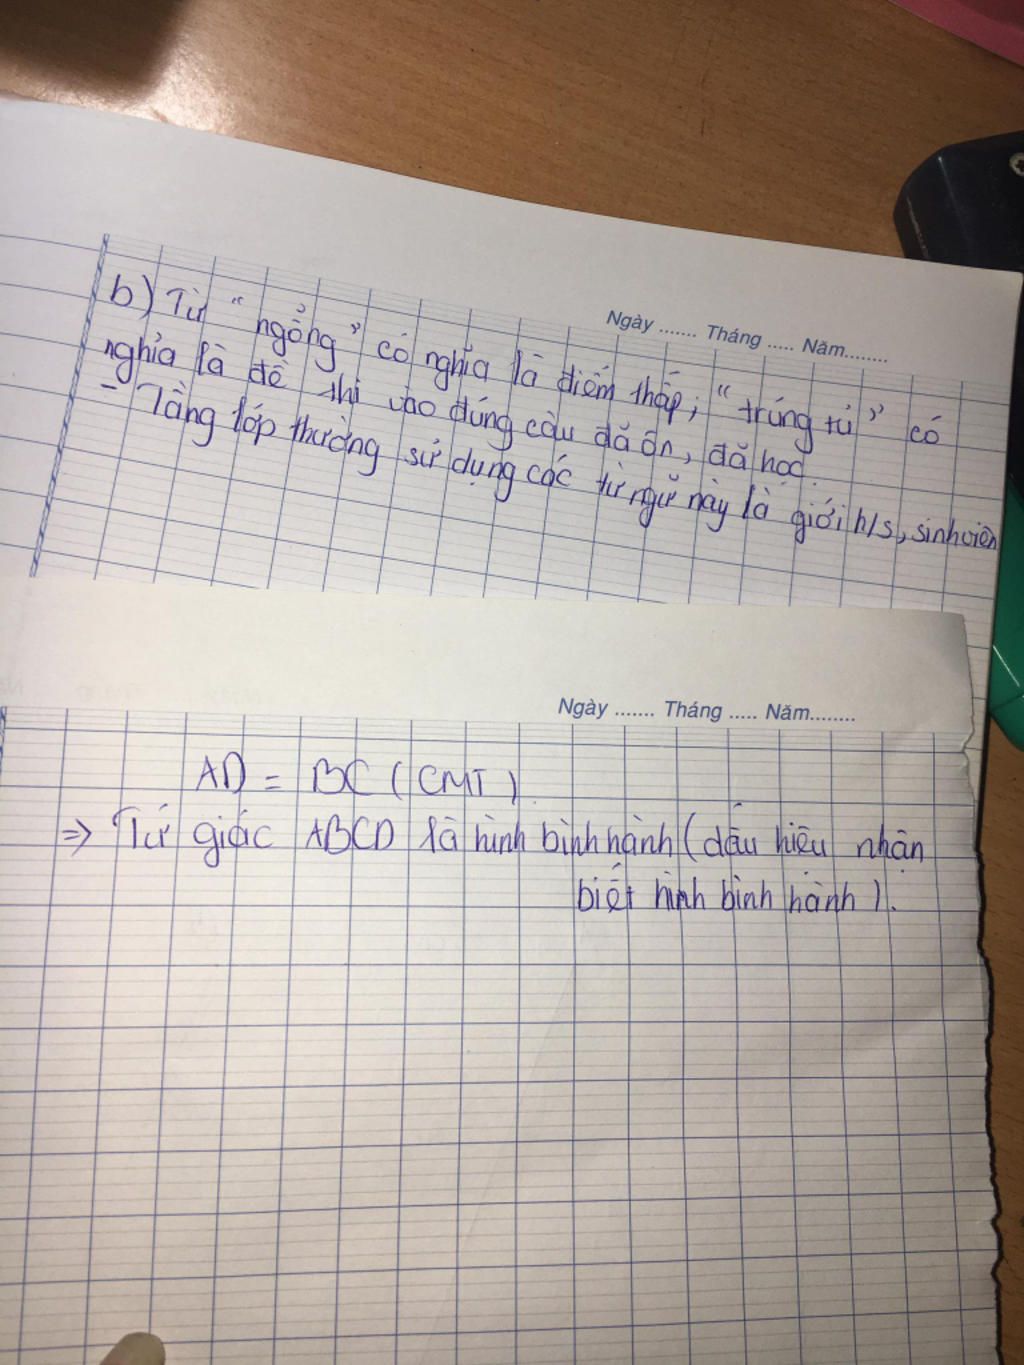 Ngày ....... Tháng ..... Năm........
b) Từ “ngỗng” có nghĩa là điểm thấp; “trúng tủ” có
nghĩa là đề thi vào đúng câu đã ôn, đã học.
- Tầng lớp thường sử dụng các từ ngữ này là giới h/s, sinh viên
Ngày ....... Tháng ..... Năm........
AD = BC (CMT)
=> Tứ giác ABCD là hình bình hành (dấu hiệu nhận
biết hình bình hành).